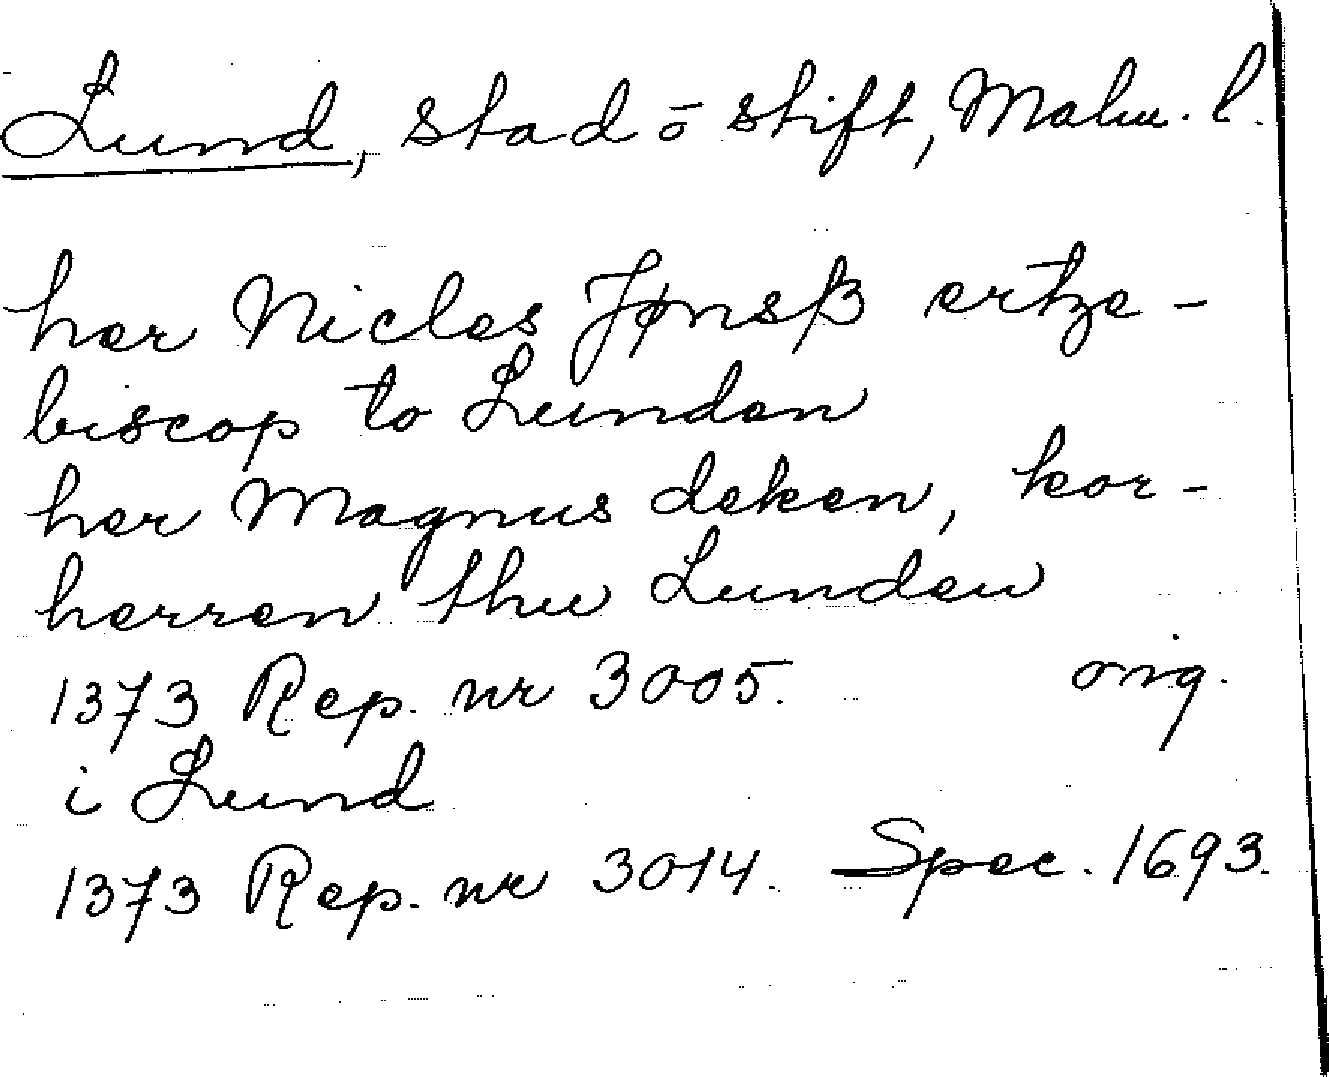 Lund, stad ō stift, Malm. l.
her Nicles Jønsß ertze-
biscop to Lunden
her Magnus deken, kor-
herren thu Lunden
1373 Rep. nr 3005. orig.
i Lund
1373 Rep. nr 3014. Spec. 1693.